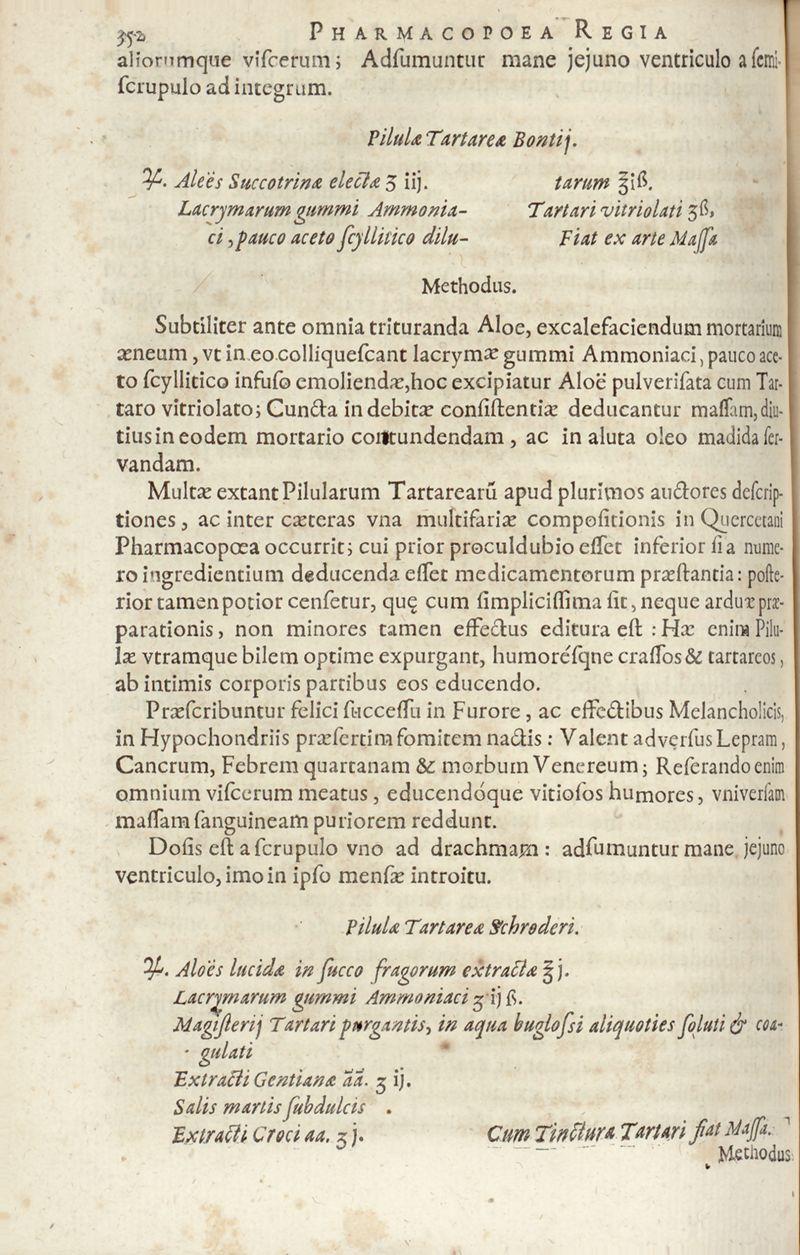 352 PHARMACOPOEA REGIA
aliorumque viſcerum; Adſumuntur mane jejuno ventriculo a ſemi-
ſcrupulo ad integrum.
Pilulæ Tartareæ Bontij.
℞. Aleës Succotrinæ electæ ʒ iij.
Lacrymarum gummi Ammonia-
ci, pauco aceto ſcyllitico dilu-
tarum ℥iß.
Tartari vitriolati ʒß,
Fiat ex arte Maſſa
Methodus.
Subtiliter ante omnia trituranda Aloe, excalefaciendum mortarium
æneum, vt in eo colliqueſcant lacrymæ gummi Ammoniaci, pauco ace-
to ſcyllitico infuſo emoliendæ, hoc excipiatur Aloë pulveriſata cum Tar-
taro vitriolato; Cuncta in debitæ conſiſtentiæ deducantur maſſam, diu-
tius in eodem mortario contundendam, ac in aluta oleo madida ſer-
vandam.
Multæ extant Pilularum Tartarearū apud plurimos auctores deſcrip-
tiones, ac inter cæteras vna multifariæ compoſitionis in Quercetani
Pharmacopœa occurrit; cui prior proculdubio eſſet inferior ſi a nume-
ro ingredientium deducenda eſſet medicamentorum præſtantia: poſte-
rior tamen potior cenſetur, quę cum ſimpliciſſima ſit, neque arduæ præ-
parationis, non minores tamen effectus editura eſt : Hæ enim Pilu-
læ vtramque bilem optime expurgant, humoréſqne craſſos & tartareos,
ab intimis corporis partibus eos educendo.
Præſcribuntur felici ſucceſſu in Furore, ac effectibus Melancholicis,
in Hypochondriis præſertim fomitem nactis : Valent adverſus Lepram,
Cancrum, Febrem quartanam & morbum Venereum; Referando enim
omnium viſcerum meatus, educendóque vitioſos humores, vniverſam
maſſam ſanguineam puriorem reddunt.
Doſis eſt a ſcrupulo vno ad drachmam : adſumuntur mane jejuno
ventriculo, imo in ipſo menſæ introitu.
Pilulæ Tartareæ Schroderi.
℞. Aloës lucidæ in ſucco fragorum extractæ ℥ j.
Lacrymarum gummi Ammoniaci ʒ ij ß.
Magiſterij Tartari purgantis, in aqua bugloſsi aliquoties ſoluti & coa-
gulati
Extracti Gentianæ āā. ʒ ij.
Salis martis ſubdulcis .
Extracti Croci aa. ʒ j.
Cum Tinctura Tartari fiat Maſſa.
Methodus